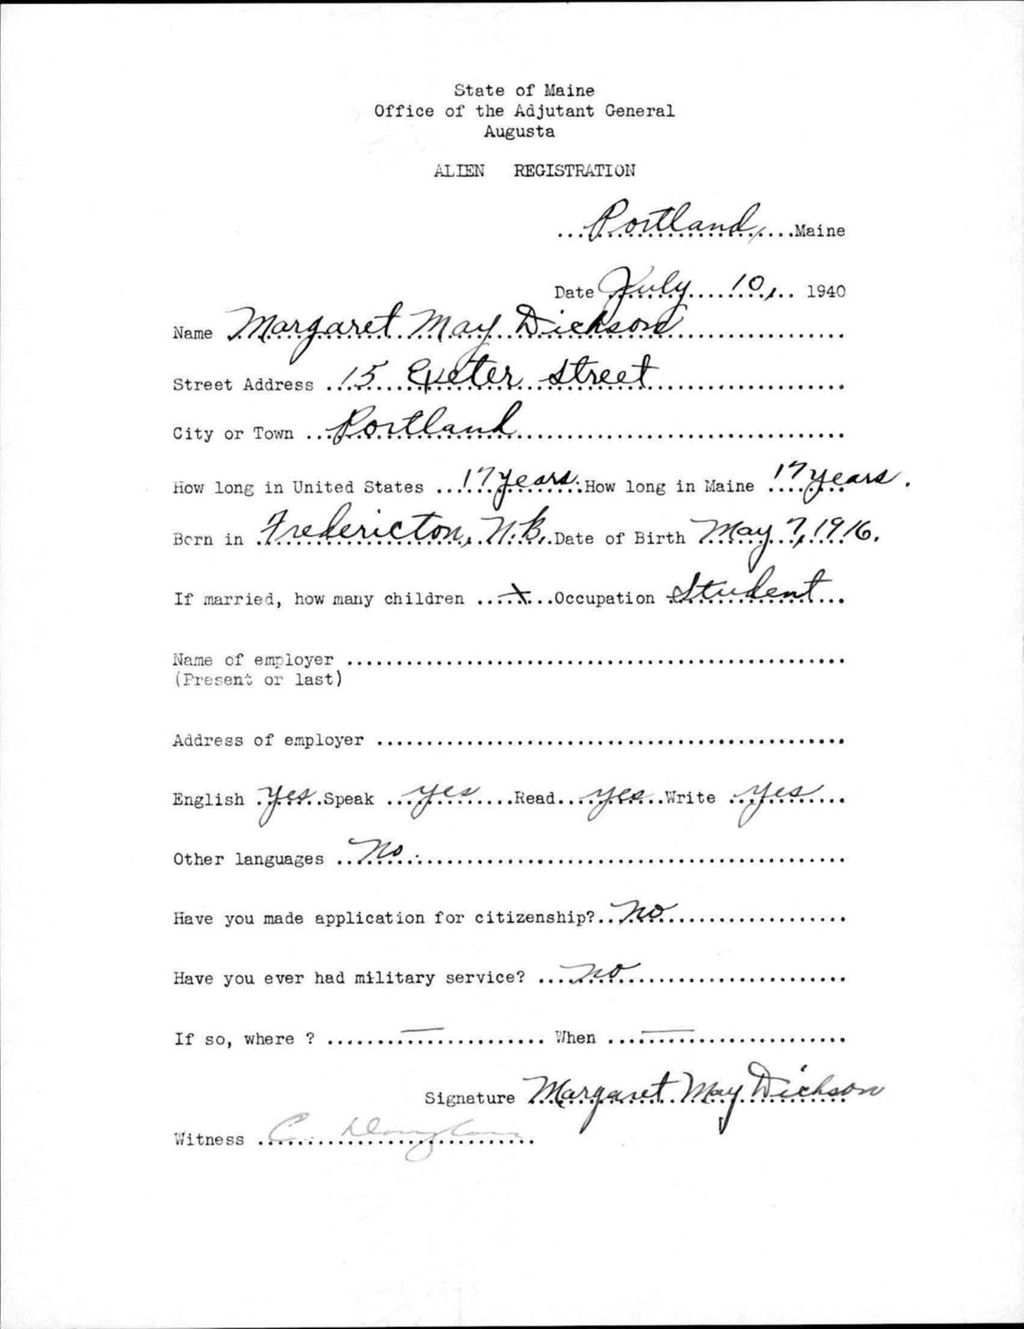 State of Maine
Office of the Adjutant General
Augusta
ALIEN REGISTRATION
Portland, Maine
Date July 10, 1940
Name Margaret May Dickson
Street Address 15 Exeter Street
City or Town Portland
How long in United States 17 years. How long in Maine 17 years.
Born in Fredericton, N.B. Date of Birth May 7, 1916.
If married, how many children x Occupation Student
Name of employer
(Present or last)
Address of employer
English yes Speak yes Read yes Write yes
Other languages No.
Have you made application for citizenship? No
Have you ever had military service? no
If so, where ? — When —
Signature Margaret May Dickson
Witness C.